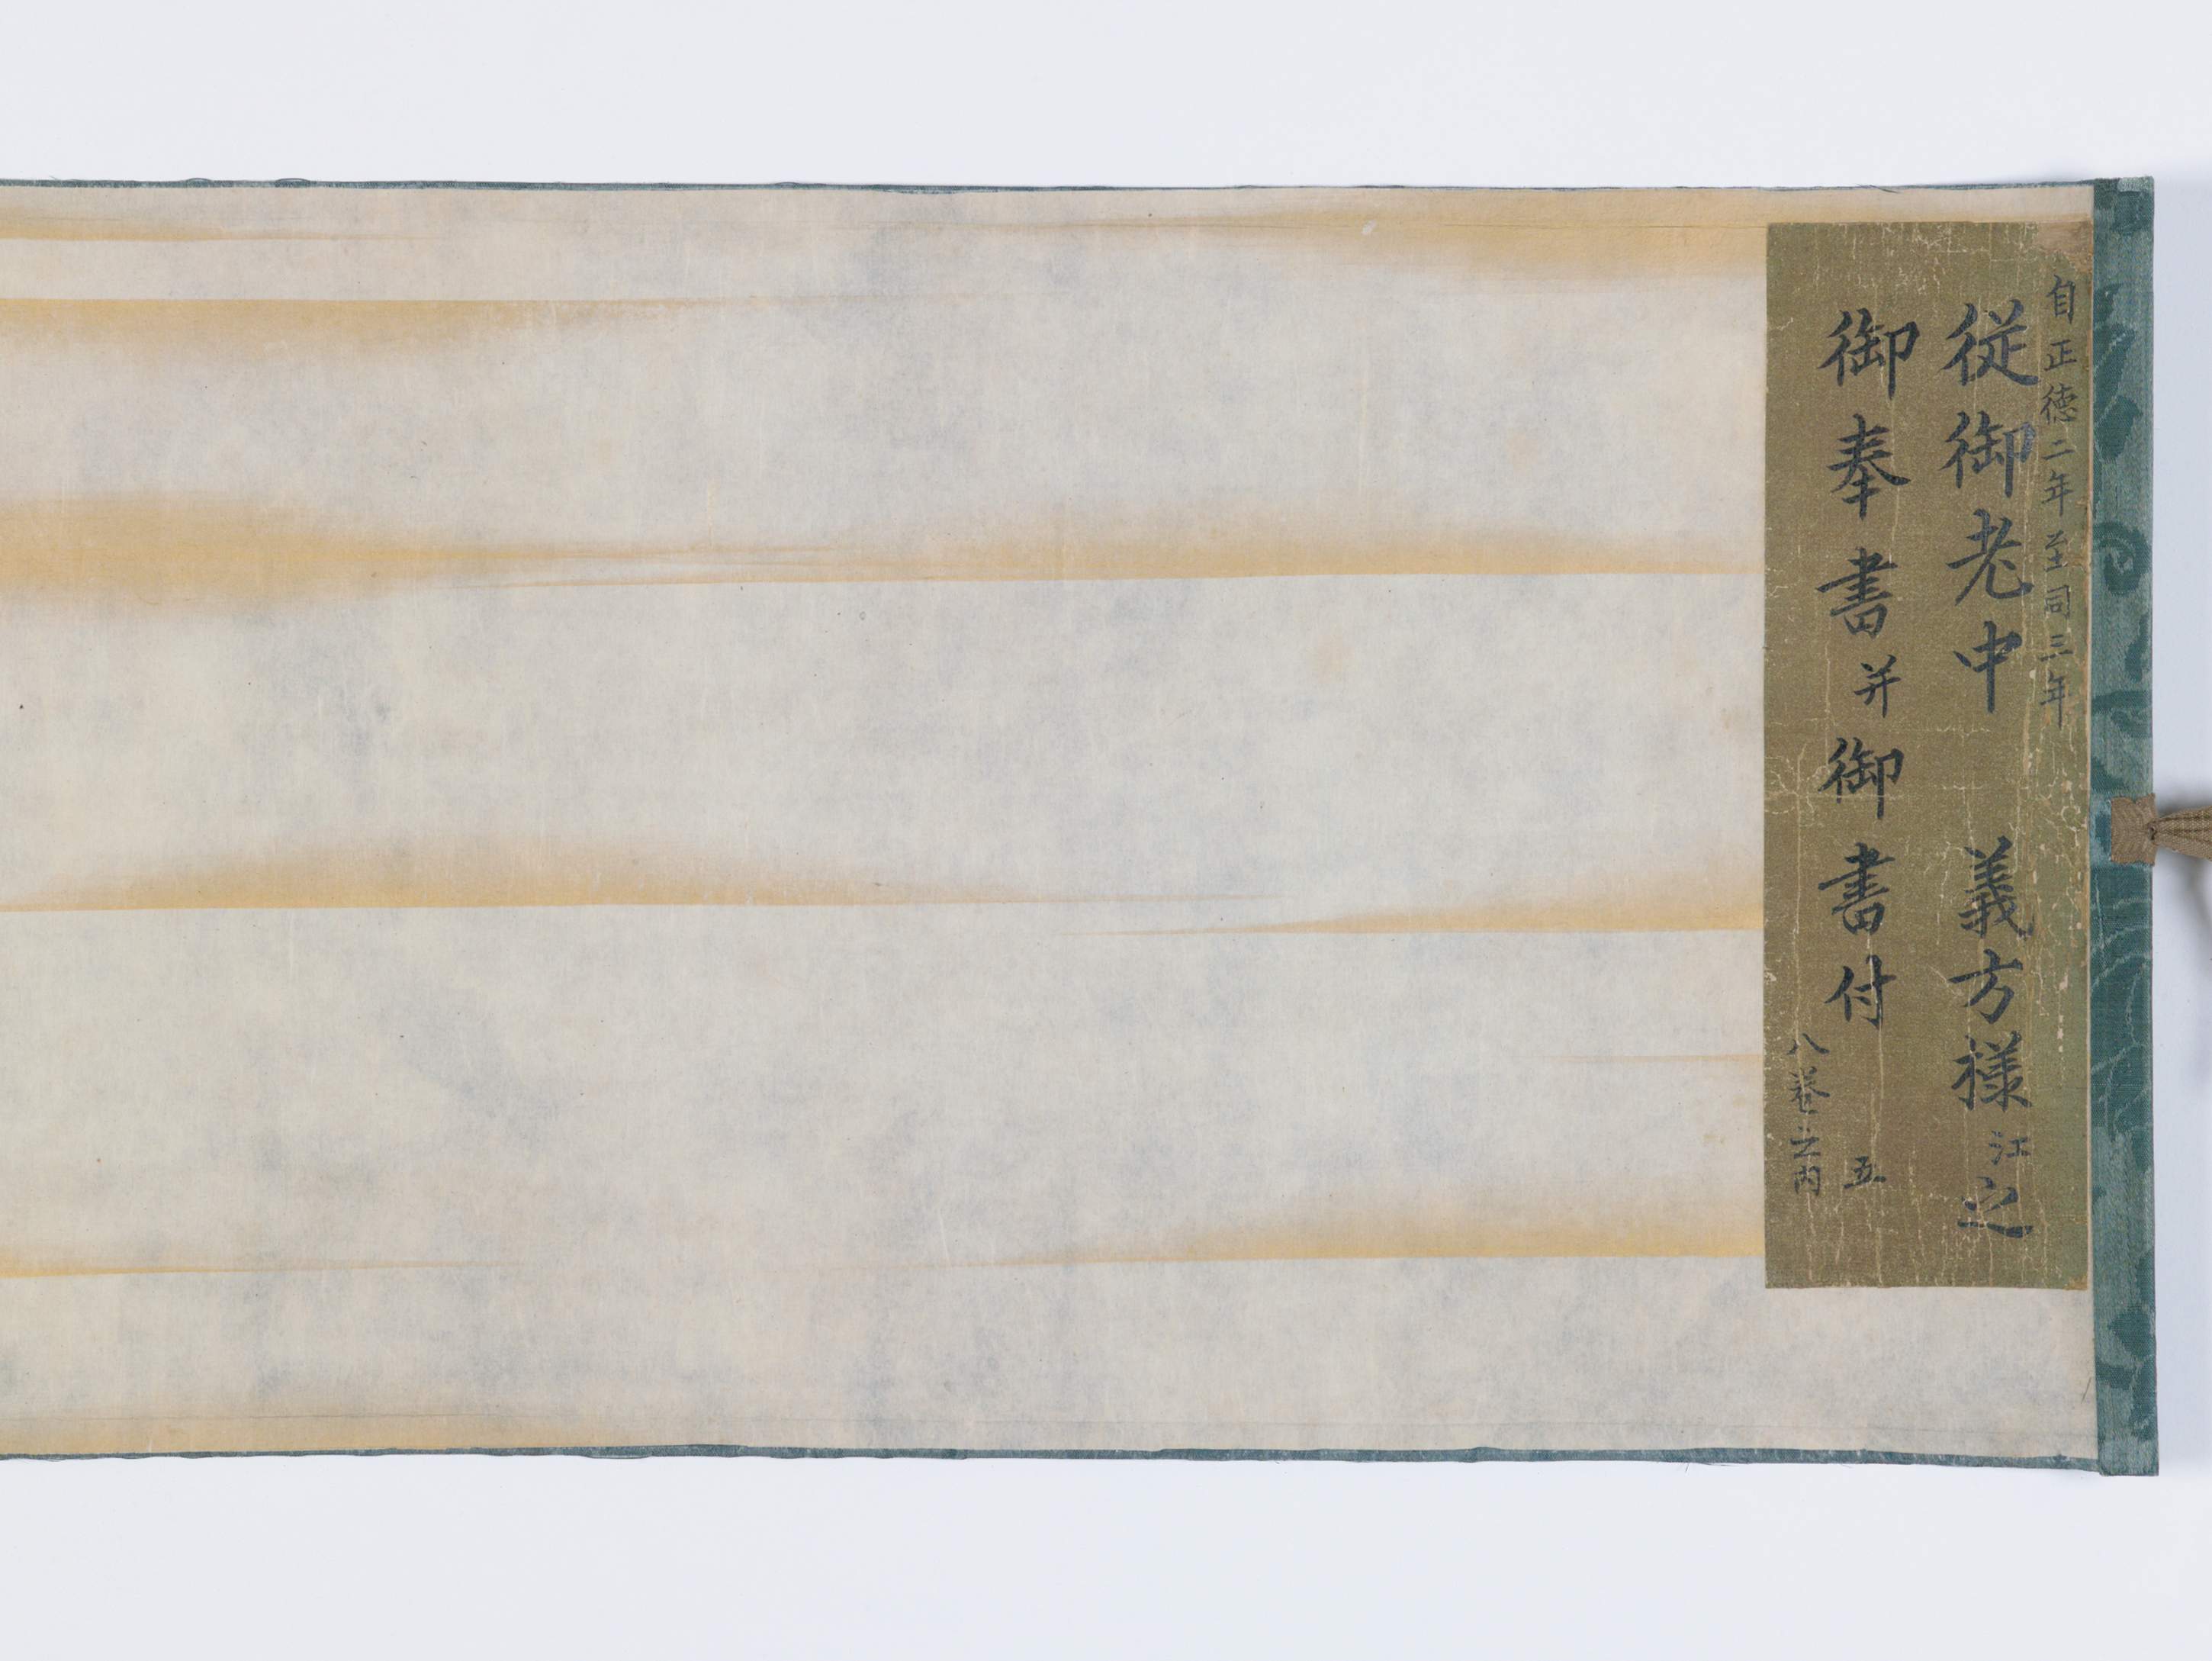 自正徳二年至同三年
従御老中　義方様江之
御奉書并御書付　五
八巻之内